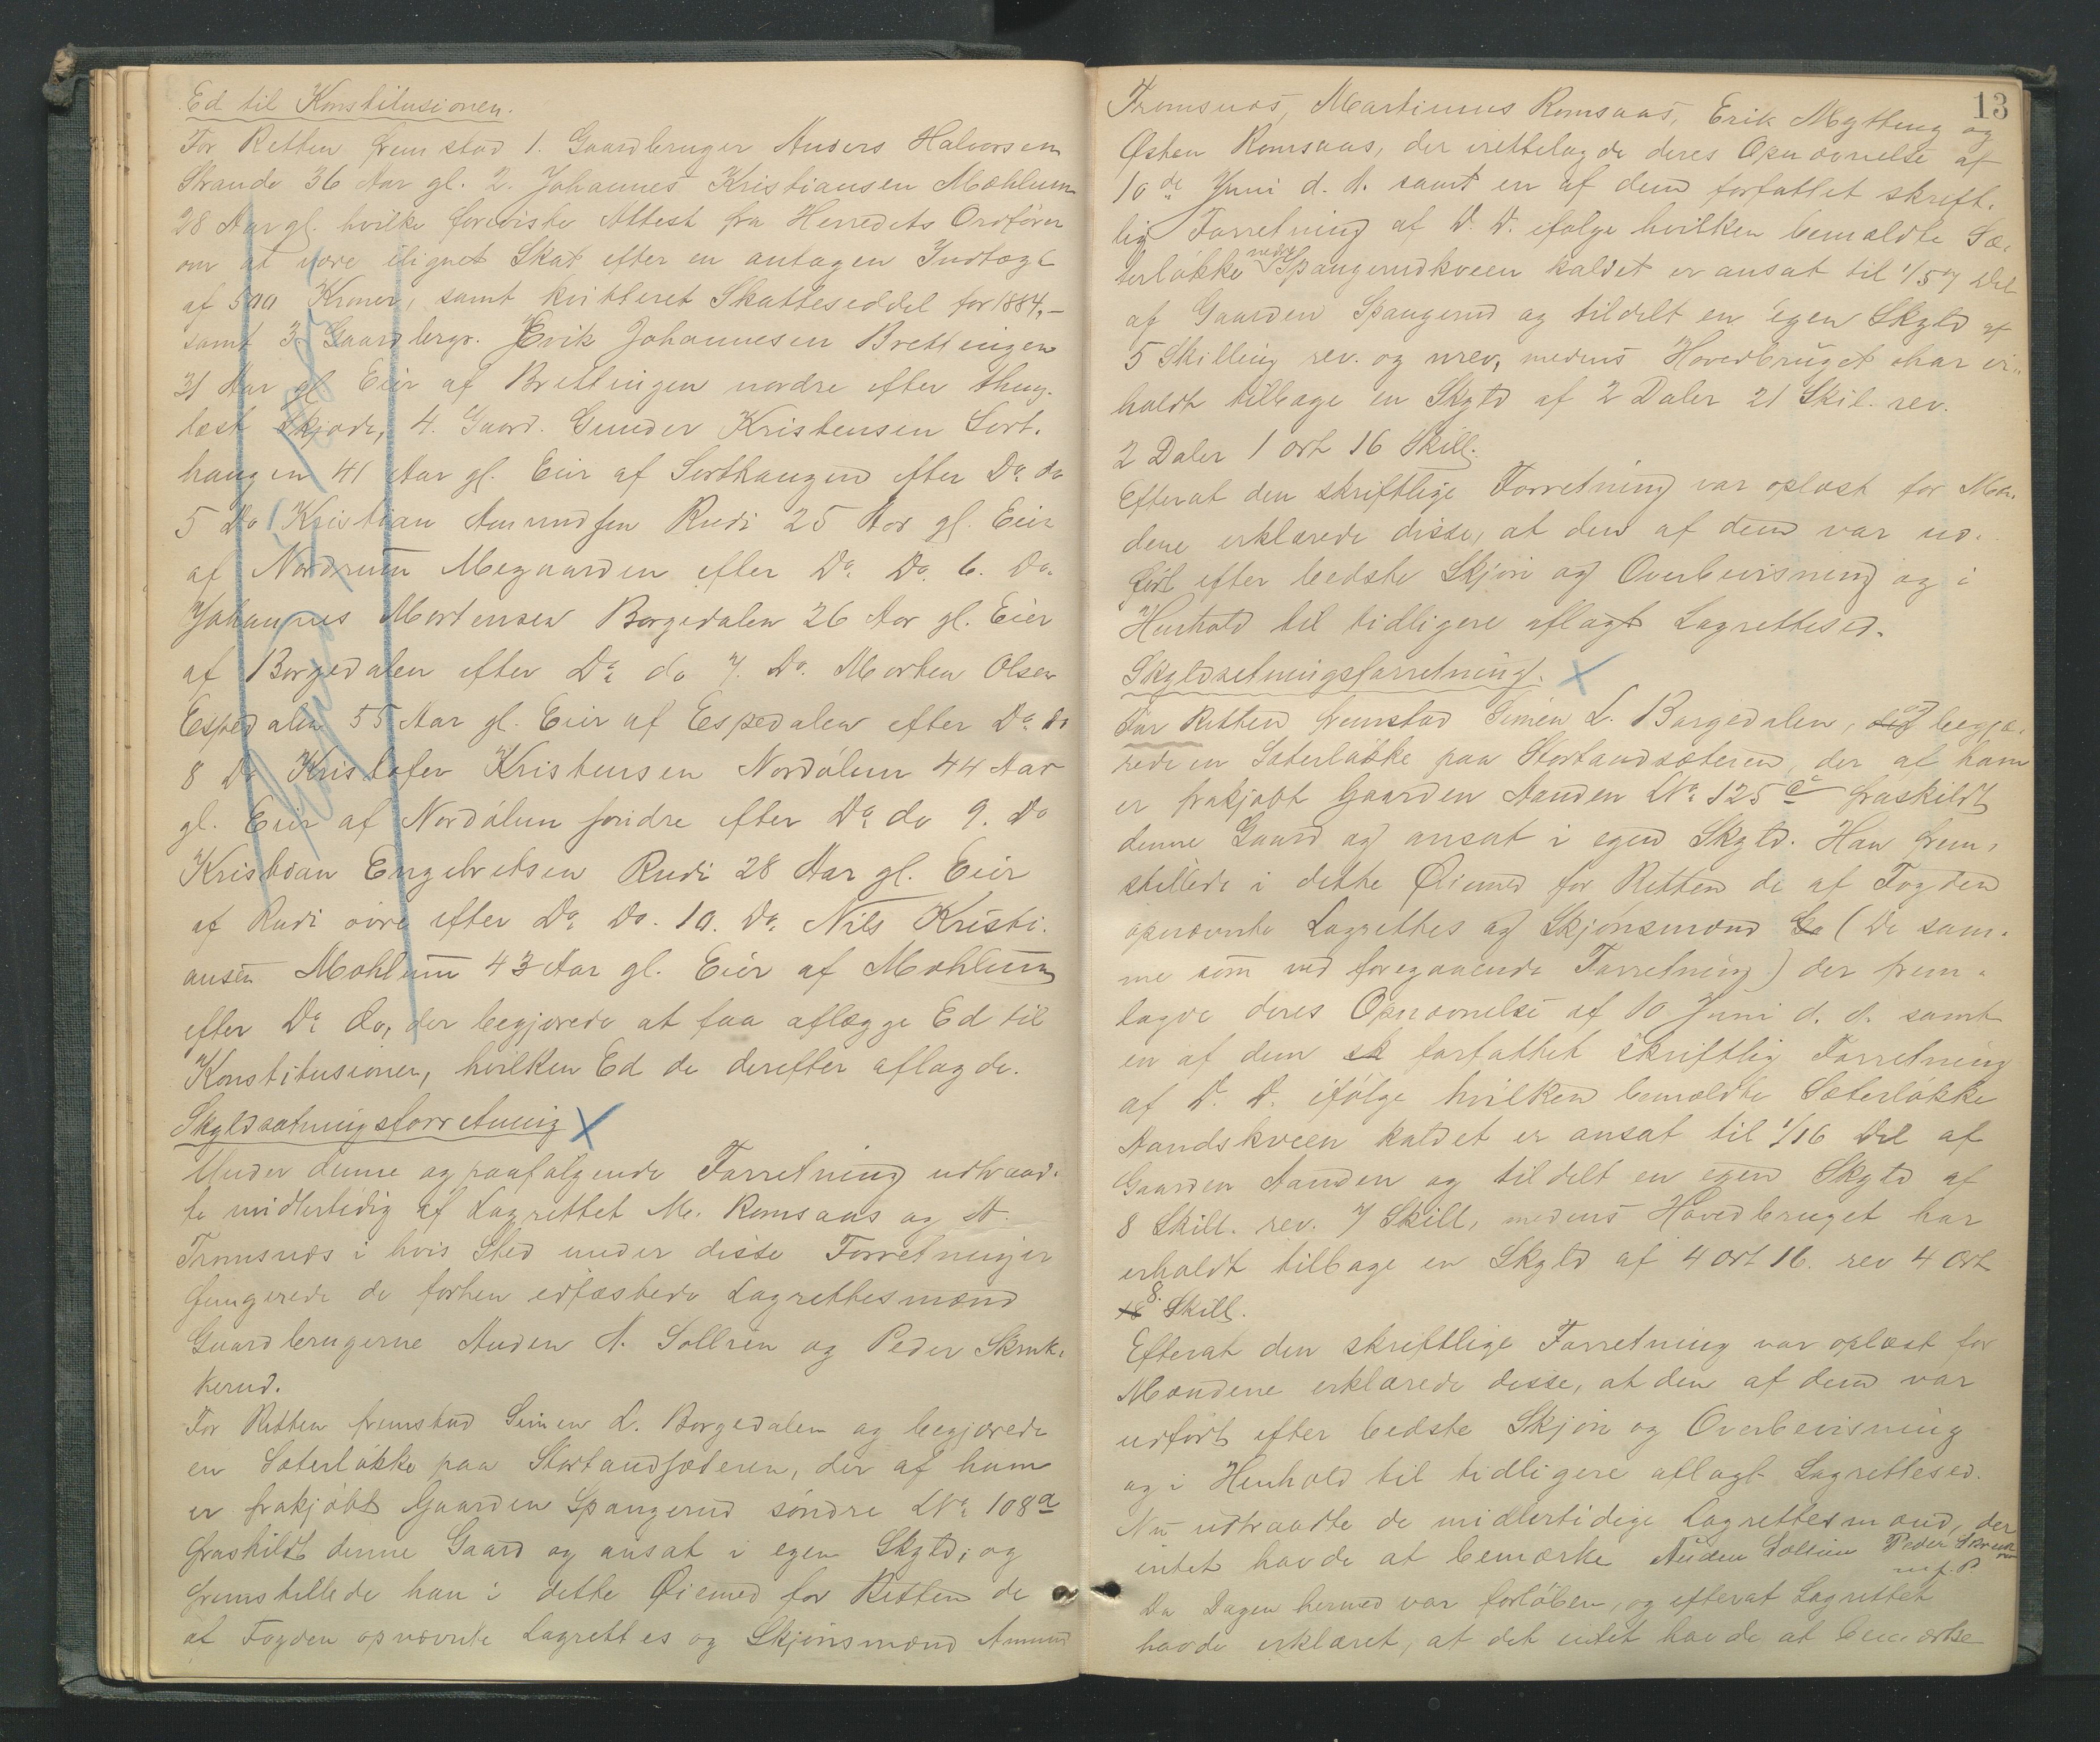 Ed til Konstitusionen.
For Retten frem stod 1. Gaardbruger Anders Halvorsen
Strande 36 Aar gl. 2. Johannes Kristiansen Mæhlum
28 Aar gl. hvilke foreviste Attest fra Herredets Ordfører
om at være ilignet Skat efter en antagen Indtægt
af 500 Kroner, samt kvitteret Skatteseddel for 1884,-
samt 3 Gaardbrgr. Erik Johannesen Brettingen
31 Aar gl Eier af Brettingen nordre efter thing-
læst Skjøde, 4. Gaard. Gunder Kristensen Sort-
haugen 41 Aar gl. Eier af Sorthaugen efter Do do
5 Do Kristian Amundsen Rudi 25 Aar gl. Eier
af Nordrum Megaarden efter Do Do 6. Do
Johannes Mortensen Borgedalen 26 Aar gl. Eier
af Borgedalen efter Do do 7. Do. Morten Olsen
Espedalen 55 Aar gl. Eier af Espedalen efter Do do
8 Do Kristofer Kristensen Nordølum 44 Aar
gl. Eier af Nordølum søndre efter Do do 9. Do
Kristian Engebretsen Rudi 28 Aar gl. Eier
af Rudi øvre efter Do Do. 10. Do. Nils Kristi-
ansen Mæhlum 43 Aar gl. Eier af Mæhlum
efter Do do, der begjærede at faa aflægge Ed til
Konstitusionen, hvilken Ed de derefter aflagde.
Skyldsætningsforretning X
Under denne og paafølgende Forretning udtraad-
te midlertidig af Lagrettet M. Romsaas og A.
Tromsnæs i hvis Sted under disse Forretninger
fungerede de forhen edfæstede Lagrettesmænd
Gaardbrugerne Auden A. Sollien og Peder Skruk-
kerud.
For Retten fremstod Simen L. Borgedalen og begjærede
en Sæterløkke paa Stortandsæteren, der af ham
er frakjøbt Gaarden Spangerud søndre LNo 108a
fraskildt denne Gaard og ansat i egen Skyld; og
fremstillede han i dette Øiemed for Retten de
af Fogden opnævnte Lagrettes og Skjønsmænd Amund
13
Tromsnæs, Martinus Romsaas, Erik Mytting og
Østen Romsaas, der irettelagde deres Opnævnelse af
10de Juni d. A. samt en af dem forfattet skrift-
lig Forretning af D. D. ifølge hvilken bemældte Sæ-
terløkke nedre Spangerudkveen kaldet er ansat til 1/57 Del
af Gaarden Spangerud og tildelt en egen Skyld af
5 Skilling rev. og urev, medens Hovedbruget har er-
holdt tilbage en Skyld af 2 Daler 21 Skil. rev.
2 Daler 1 ort 16 Skill.
Efterat den skriftlige Forretning var oplæst for Mæn-
dene erklærede disse, at den af dem var ud-
ført efter bedste Skjøn og Overbevisning og i
Henhold til tidligere aflagt Lagrettesed.
Skyldsetningsforretning. X
For Retten fremstod Simen L. Borgedalen, og begjæ-
rede en Sæterløkke paa Stortandsæteren, der af ham
er frakjøbt Gaarden Aanden LNo 125c fraskildt
denne Gaard og ansat i egen Skyld. Han frem-
stillede i dette Øiemed for Retten de af Fogden
opnævnte Lagrettes og Skjønsmænd (De sam-
me som ved foregaaende Forretning) der frem-
lagde deres Opnævnelse af 10 Juni d. A. samt
en af dem sk forfattet skriftlig Forretning
af D. D. ifølge hvilken bemældte Sæterløkke
Aandskveen kaldet er ansat til 1/16 Del af
Gaarden Aanden og tildelt en egen Skyld af
8 Skill. rev. 7 Skill, medens Hovedbruget har
erholdt tilbage en Skyld af 4 Ort 16. rev 4 Ort
18 8. Skill.
Efterat den skriftlige Forretning var oplæst for
Mændene erklærede disse, at den af dem var
udført efter bedste Skjøn og Overbevisning
og i Henhold til tidligere aflagt Lagrettesed.
Nu udtraadte de midlertidige Lagrettesmænd, der
intet havde at bemærke Auden Sollien Peder Skruk
m. f. P.
Da Dagen hermed var forløben, og efterat Lagrettet
havde erklæret, at det intet havde at bemærke